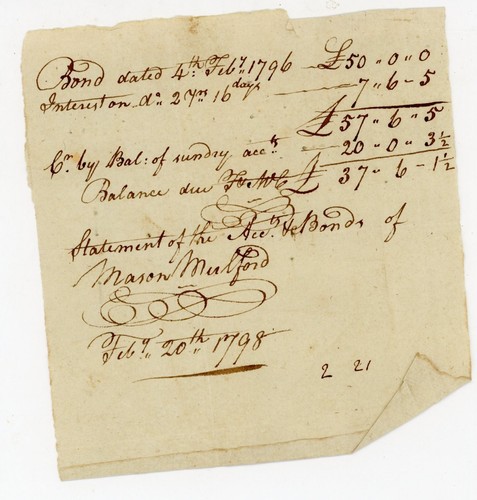 Bond dated 4th Feby 1796 £50 " 0 " 0
Interest on do 2 yrs 16 days 7 " 6 - 5
£ 57 " 6 " 5
Cr by Bal: of sundry accts 20 " 0 " 3 1/2
Balance due £ 37 " 6 - 1 1/2
Statement of the Acct & Bonds of
Mason Mulford
Feby 20th 1798
2 21